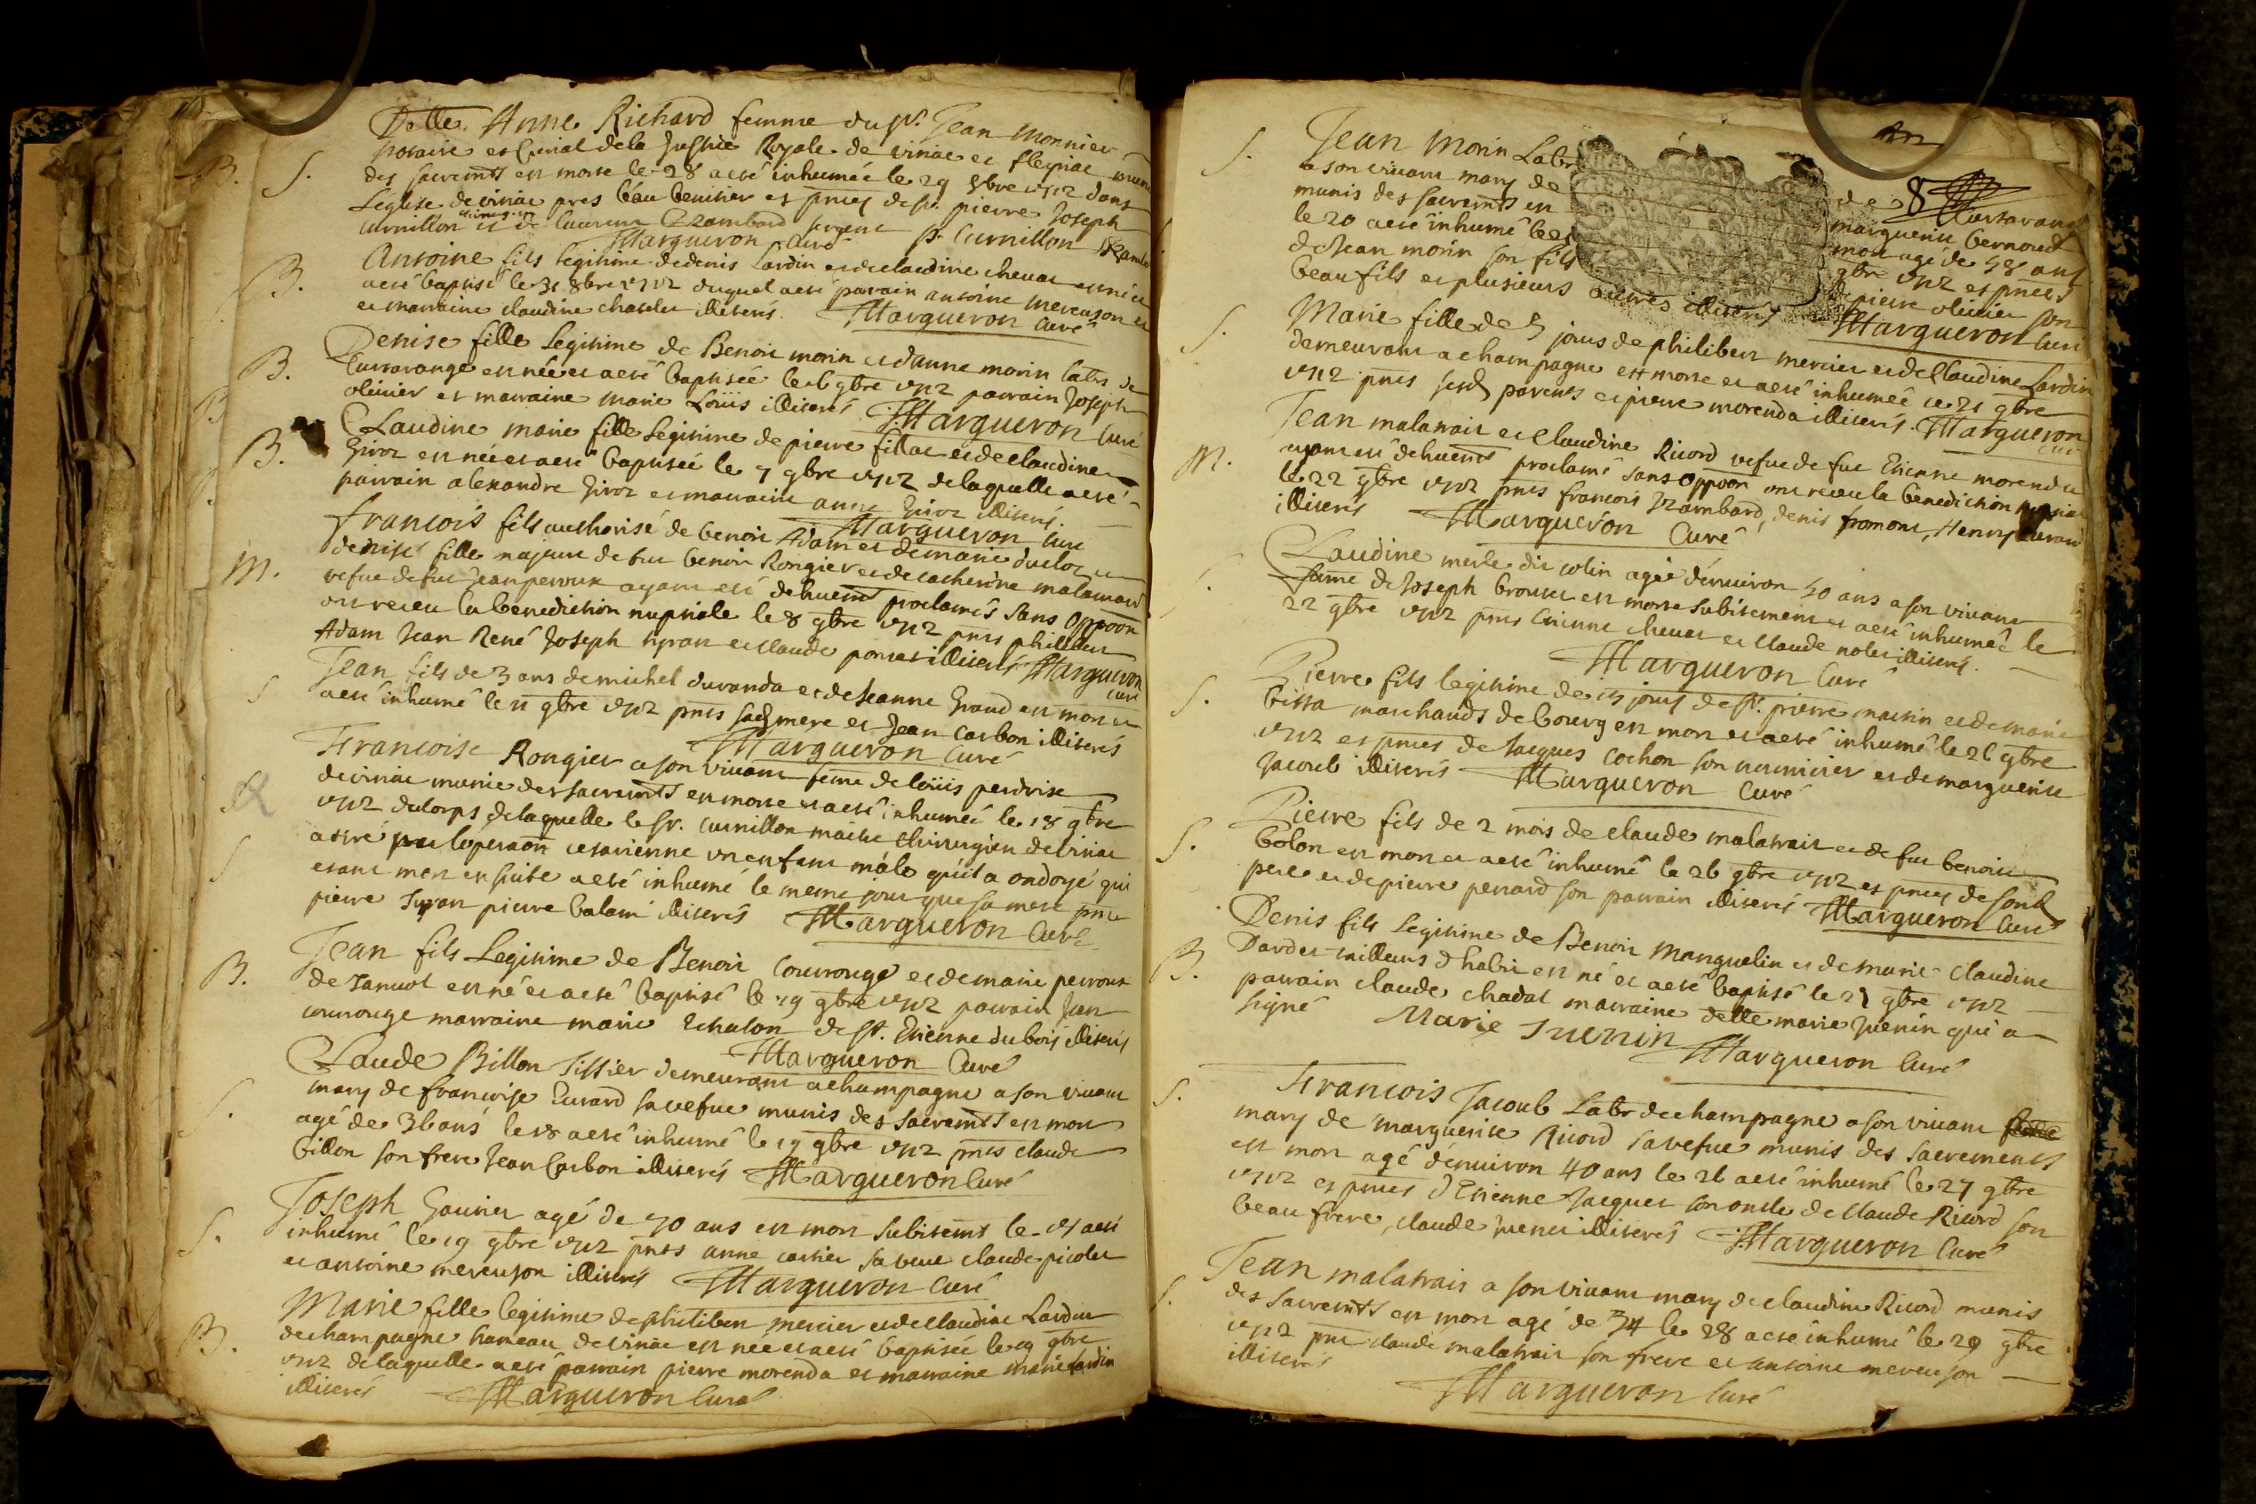 Delle. Anne Richard femme du Sr. Jean Monnier
notaire et curial de la Justice Royale de viriac et fleyriac munie
des sacremts est morte le 28 a esté inhumée le 29 8bre 1712 dans
L'église de viriac pres l'eau benitier es pnces de Sr. pierre Joseph
Curnillon chirurgien et de Laurent Rambard sergent P. Curnillon
Margueron Curé
B. S.
Antoine fils legitime de denis Lardin et de claudine chevat est né et
a esté baptisé le 31 8bre 1712 duquel a esté parain antoine mereuson
et marraine claudine chatelet illiterés. Margueron Curé
B.
Denise fille Legitime de Benoit morin et d'anne morin labrs de
Curtarange est née et a esté baptisée le 6 9bre 1712 parrain Joseph
olivier et marraine marie Loüis illiterés Margueron Curé
B.
Claudine marie fille Legitime de pierre fillat et de claudine
Givor est née et a esté baptisée le 7 9bre 1712 de laquelle a esté
parrain alexandre Givor et marraine anne Givor illiterés.
Margueron Curé
B.
francois fils authorisé de benoit Adam et de marie duclot et
denise fille majeure de fut benoit Rongier et de catherine malamard
vefve de fut Jean perroux ayant esté dehuemt proclamés sans oppoon
ont receu la benediction nuptiale le 8 9bre 1712 pnts philibert
Adam Jean René Joseph tyran et claude poncet illiterés Margueron
curé
M.
Jean fils de 3 ans de michel duranda et de Jeanne Graud est mort et
a esté inhumé le 11 9bre 1712 pnts sad mere et Jean Carbon illiterés
Margueron Curé
S
Francoise Rongier a son vivant feme de loüis perdrix
de viriac munie des sacremts est morte et a esté inhumée le 18 9bre
1712 du corps de laquelle le Sr. curnillon maitre chirurgien de viriac
a tiré par l'operaõn cesarienne un enfant mâle qu'il a ondoyé qui
etant mort ensuite a esté inhumé le meme jour que sa mere pnts
pierre Tyran pierre balam illiterés Margueron Curé
S
Jean fils Legitime de Benoit Couvrouge et de marie perroux
de Tanvol est né et a esté baptisé le 19 9bre 1712 parrain Jean
couvrouge marraine marie Echalon de St. Etienne du bois illiterés
Margueron Curé
B.
Claude Billon Tissier demeurant a champagne a son vivant
mary de françoise Evrard sa vefve munis des sacremts est mort
agé de 36 ans le 18 a esté inhumé le 19 9bre 1712 pnts claude
billon son frere Jean Carbon illiterés Margueron Curé
S.
Joseph Gavirier agé de 70 ans est mort subitemt le 17 a esté
inhumé le 19 9bre 1712 pnts anne cartier sa veuve claude picolet
et antoine mereuson illiterés Margueron Curé
S.
Marie fille legitime de philibert mercier et de claudine Lardin
de champagne hameau de viriac est née et a esté baptisée le 19 9bre
1712 de laquelle a esté parrain pierre morenda et marraine marie Lardin
illiterés Margueron Curé
B.
Jean Morin Labr de Curtarange
a son vivant mary de marguerite bernoud
munis des sacremts est mort agé de 58 ans
le 20 a esté inhumé le 21 9bre 1712 es pnces
de Jean morin son fils de pierre olivier son
beau fils et plusieurs autres illiterés Margueron Curé
S.
Marie fille de 5 jours de philibert mercier et de Claudine Lardin
demeurant a champagne est morte et a esté inhumée le 21 9bre
1712 pnts sesd parents et pierre morenda illiterés. Margueron
curé
S.
Jean malatrait et Claudine Ricord vefve de fut Etienne morendu
ayant esté dehuemt proclamé sans oppoon ont receu la benediction nuptiale
le 22 9bre 1712 pnts francois Rambard, denis fromont, Henry
illiterés Margueron Curé
M.
Claudine merle dit colin agée d'environ 50 ans a son vivant
fame de Joseph brouset est morte subitement et a esté inhumée le
22 9bre 1712 pnts Etienne chevat et claude nolet illiterés.
Margueron Curé
Pierre fils legitime de 15 jours de Sr. pierre martin et de marie
bissa marchands de bourg est mort et a esté inhumé le 26 9bre
1712 es pnces de Jacques cochon son nourricier et de marguerite
Jacoub illiterés Margueron Curé
S.
Pierre fils de 2 mois de claude malatrait et de fut benoite
bolon est mort et a esté inhumé le 26 9bre 1712 es pnces de sond
pere et de pierre penard son parrain illiterés Margueron Curé
S.
Denis fils Legitime de Benoit Manguelin et de marie claudine
Dardet tailleurs d'habit est né et a esté baptisé le 27 9bre 1712
parrain claude chadal marraine delle marie Juenin qui a
signé Marie Juenin Margueron Curé
B.
Francois Jacoub Labr de champagne a son vivant
mary de marguerite Ricord sa vefve munis des sacrements
est mort agé d'environ 40 ans le 26 a esté inhumé le 27 9bre
1712 es pnces d'Etienne Jacquet son oncle de Claude Ricord son
beau frere, claude Juenet illiterés Margueron Curé
S.
Jean malatrait a son vivant mary de claudine Ricord munis
des sacremts est mort agé de 34 le 28 a esté inhumé le 29 9bre
1712 pnts claude malatrait son frere et antoine mereuson
illiterés
Margueron Curé
S.